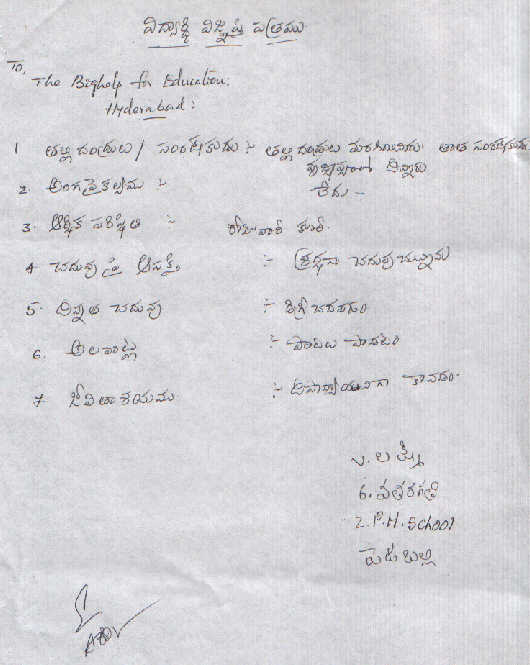 విద్యార్థి విజ్ఞప్తి పత్రము
To,
The Bighelp for Education,
Hyderabad:
1 తల్లిదండ్రులు / సంరక్షకుడు :- తల్లిదండ్రులు మరణించినారు తాత సంరక్షణలో
ఉన్నారు
2. అంగవైకల్యము :- లేదు -
3. ఆర్థిక పరిస్థితి :- రోజువారి కూలి.
4 చదువు పై ఆసక్తి :- శ్రద్ధగా చదువుచున్నాను
5. ఉన్నత చదువు :- డిగ్రీ చదవడం
6. అలవాట్లు :- పాటలు పాడటం
7. జీవితాశయము :- ఉపాధ్యాయునిగా కావడం.
V. లక్ష్మి
6. వతరగతి
Z.P.H. School